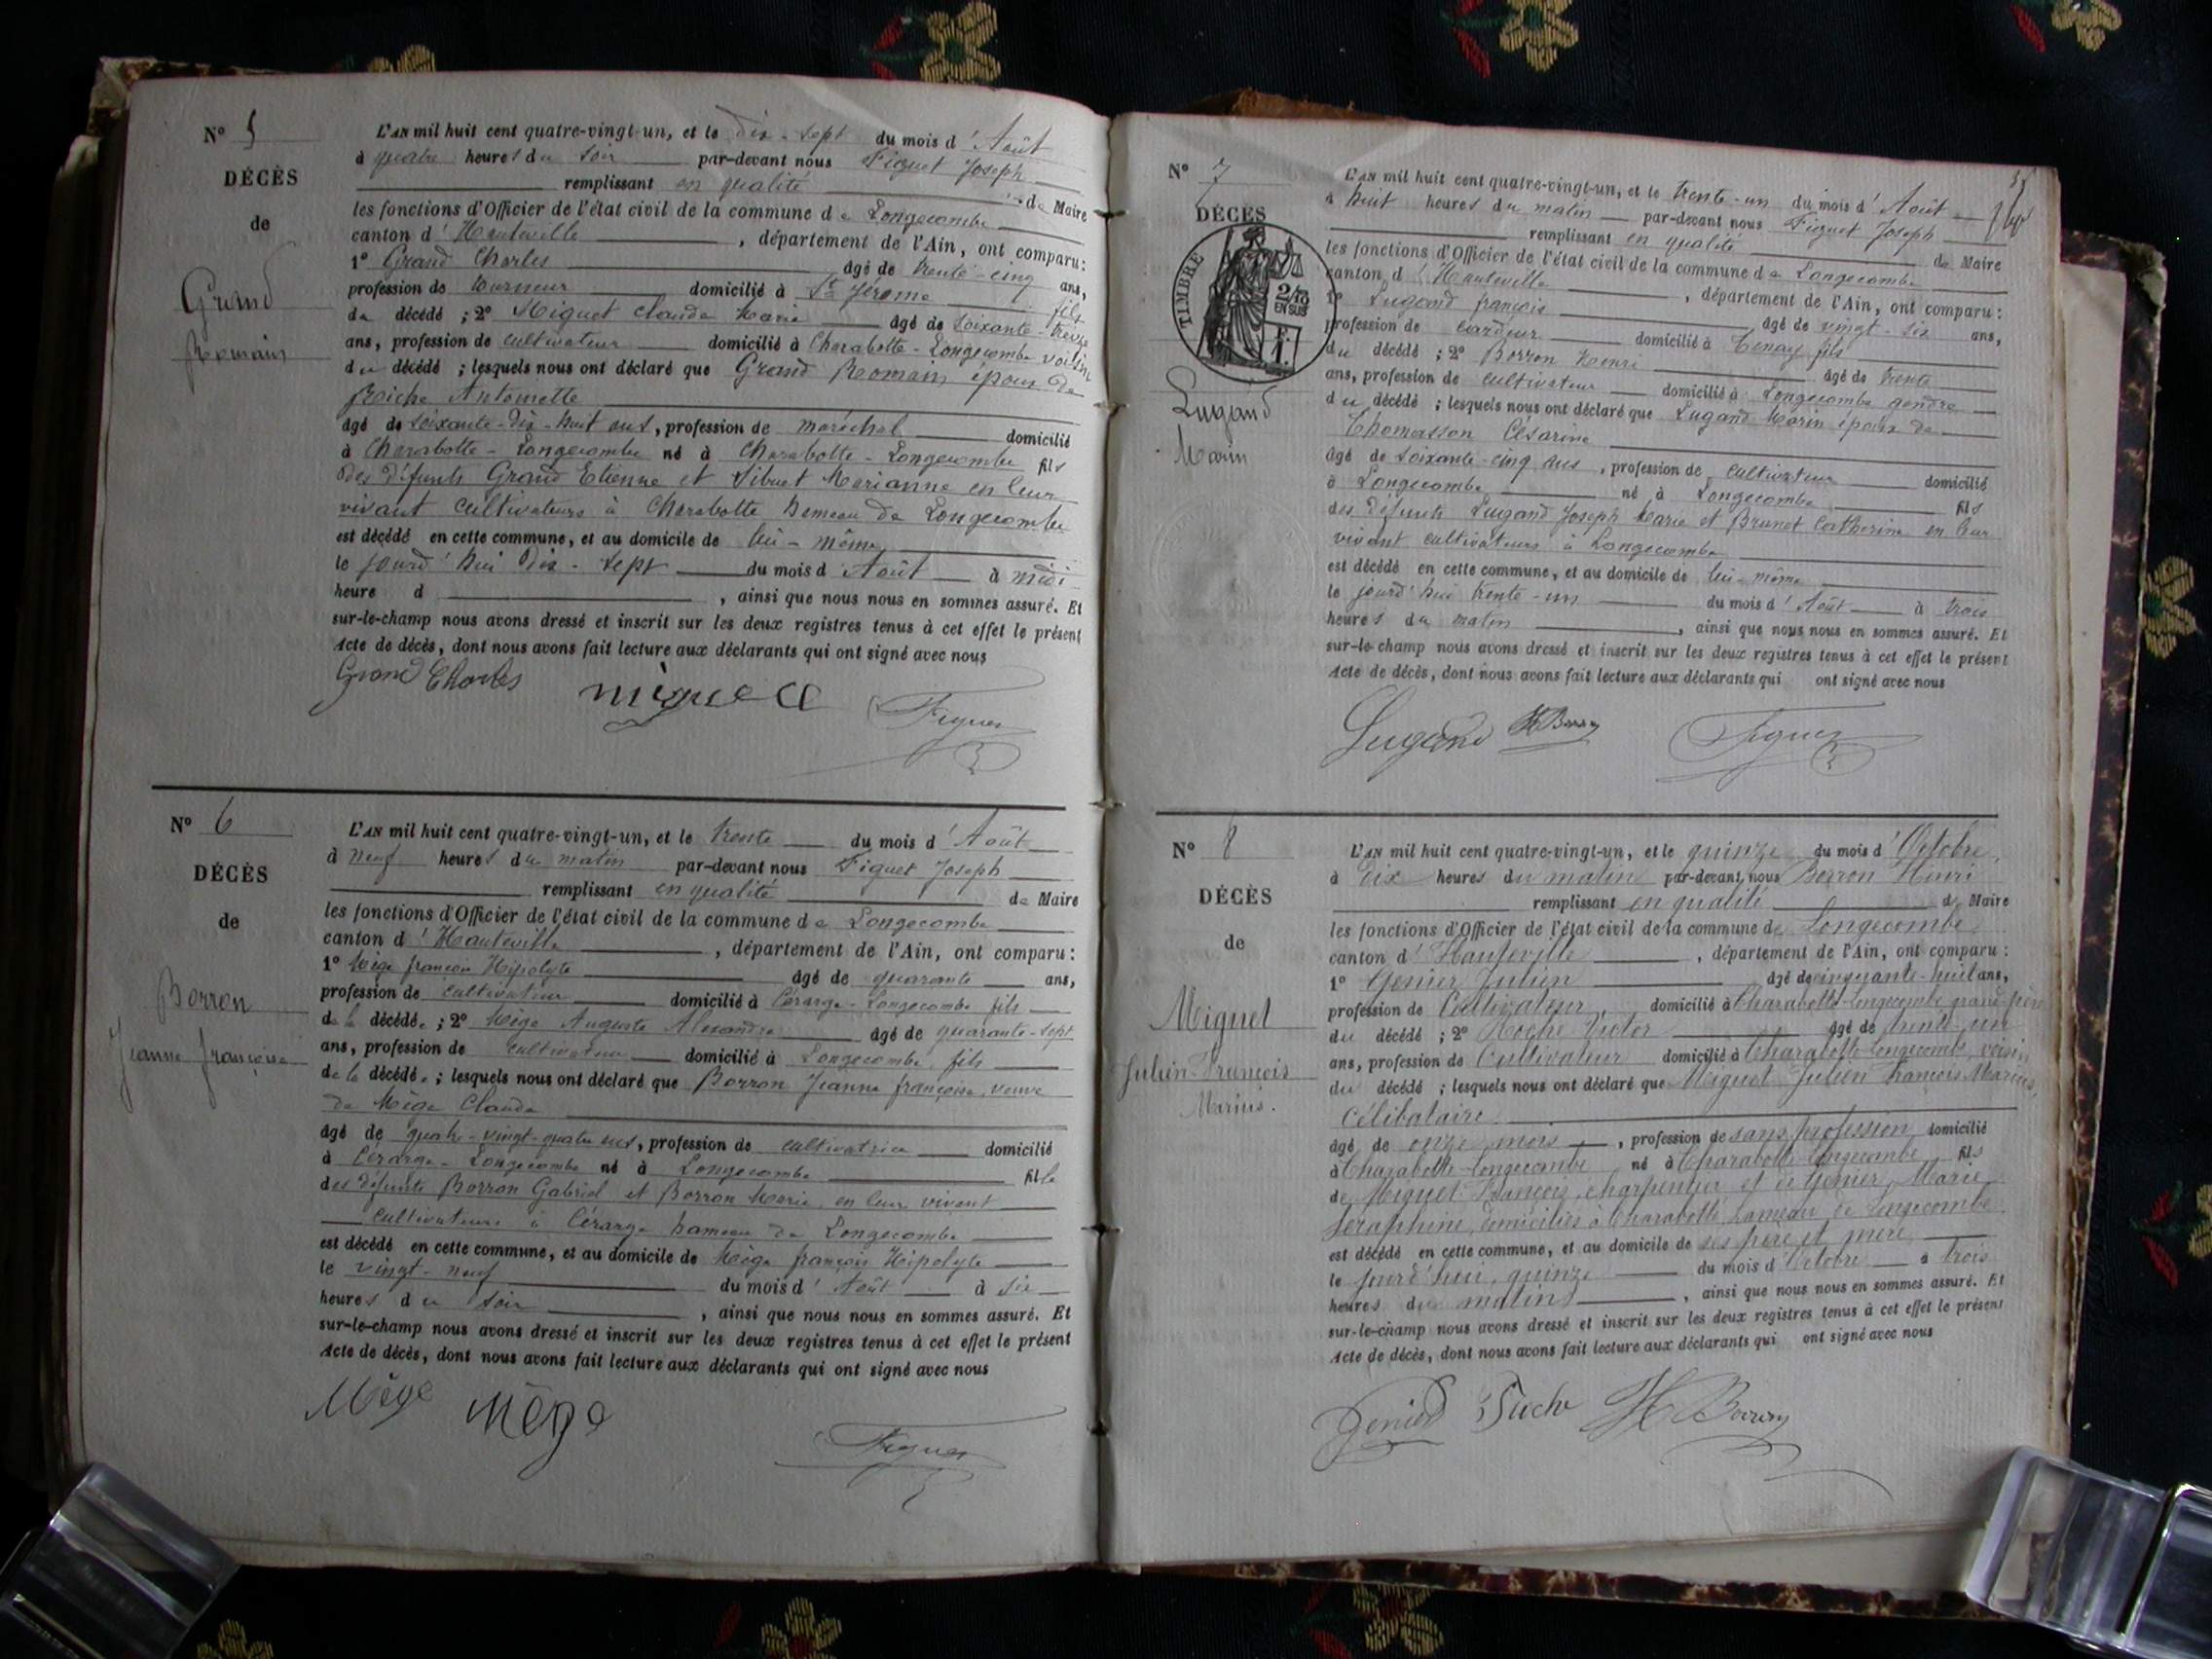 N° 5
DÉCÈS
de
Grand
Romain
L'AN mil huit cent quatre-vingt-un, et le dix-sept du mois d'Août
à quatre heures du soir par-devant nous Figuet Joseph
remplissant en qualité de Maire
les fonctions d'Officier de l'état civil de la commune de Longecombe
canton d'Hauteville, département de l'Ain, ont comparu:
1° Grand Charles âgé de trente-cinq ans,
profession de domicilié à St Jérome fils
du décédé ; 2° Miguet Claude Marie âgé de soixante-treize
ans, profession de cultivateur domicilié à Charabotte-Longecombe voisin
du décédé ; lesquels nous ont déclaré que Grand Romain époux de
Antoinette
âgé de soixante-dix-huit ans, profession de maréchal domicilié
à Charabotte-Longecombe né à Charabotte-Longecombe fils
des défunts Grand Etienne et Sibuet Marianne en leur
vivant cultivateurs à Charabotte hameau de Longecombe
est décédé en cette commune, et au domicile de lui-même
le jourd'hui dix-sept du mois d'Août à midi
heure d , ainsi que nous nous en sommes assuré. Et
sur-le-champ nous avons dressé et inscrit sur les deux registres tenus à cet effet le présent
Acte de décès, dont nous avons fait lecture aux déclarants qui ont signé avec nous
Grand Charles Figuet
N° 6
DÉCÈS
de
Borron
Jeanne françoise
L'AN mil huit cent quatre-vingt-un, et le trente du mois d'Août
à neuf heures du matin par-devant nous Figuet Joseph
remplissant en qualité de Maire
les fonctions d'Officier de l'état civil de la commune de Longecombe
canton d'Hauteville, département de l'Ain, ont comparu:
1° Mège françois Hipolyte âgé de quarante ans,
profession de cultivateur domicilié à Cérarge-Longecombe fils
de la décédée ; 2° Mège Auguste Alexandre âgé de quarante-sept
ans, profession de cultivateur domicilié à Longecombe, fils
de la décédée ; lesquels nous ont déclaré que Borron Jeanne françoise, veuve
de Mège Claude
âgé de quatre-vingt-quatre ans, profession de cultivatrice domicilié
à Cérarge-Longecombe né à Longecombe fille
des défunts Borron Gabriel et Borron Marie, en leur vivant
cultivateurs à Cérarge hameau de Longecombe
est décédé en cette commune, et au domicile de Mège françois Hipolyte
le vingt-neuf du mois d'Août à six
heures du soir, ainsi que nous nous en sommes assuré. Et
sur-le-champ nous avons dressé et inscrit sur les deux registres tenus à cet effet le présent
Acte de décès, dont nous avons fait lecture aux déclarants qui ont signé avec nous
Mège Mège Figuet
N° 7
DÉCÈS
TIMBRE
2/10
EN SUS
F.
1.
Lugand
Marin
L'AN mil huit cent quatre-vingt-un, et le trente-un du mois d'Août
à huit heures du matin par-devant nous Figuet Joseph
remplissant en qualité de Maire
les fonctions d'Officier de l'état civil de la commune de Longecombe
canton d'Hauteville, département de l'Ain, ont comparu:
1° Lugand françois âgé de vingt-six ans,
profession de cardeur domicilié à Tenay fils
du décédé ; 2° Borron Henri âgé de trente
ans, profession de cultivateur domicilié à Longecombe gendre
du décédé ; lesquels nous ont déclaré que Lugand Marin époux de
Thomasson Césarine
âgé de soixante-cinq ans, profession de cultivateur domicilié
à Longecombe né à Longecombe fils
des défunts Lugand Joseph Marie et Brunet Catherine en leur
vivant cultivateurs à Longecombe
est décédé en cette commune, et au domicile de lui-même
le jourd'hui trente-un du mois d'Août à trois
heures du matin, ainsi que nous nous en sommes assuré. Et
sur-le-champ nous avons dressé et inscrit sur les deux registres tenus à cet effet le présent
Acte de décès, dont nous avons fait lecture aux déclarants qui ont signé avec nous
Lugand H Borron Figuet
N° 8
DÉCÈS
de
Miguet
Julien-François
Marius.
L'AN mil huit cent quatre-vingt-un, et le quinze du mois d'Octobre,
à dix heures du matin par-devant nous Borron Henri
remplissant en qualité de Maire
les fonctions d'Officier de l'état civil de la commune de Longecombe,
canton d'Hauteville, département de l'Ain, ont comparu:
1° Genier Julien âgé de cinquante-huit ans,
profession de Cultivateur, domicilié à Charabotte-Longecombe grand-père
du décédé ; 2° Roche Victor âgé de trente-un
ans, profession de Cultivateur domicilié à Charabotte-Longecombe, voisin
du décédé ; lesquels nous ont déclaré que Miguet Julien François Marius,
Célibataire
âgé de onze mois, profession de sans profession, domicilié
à Charabotte-Longecombe né à Charabotte-Longecombe fils
de Miguet François, charpentier et de Genier Marie
Séraphine, domiciliés à Charabotte hameau de Longecombe
est décédé en cette commune, et au domicile de ses père et mère
le jourd'hui, quinze du mois d'Octobre à trois
heures du matin, ainsi que nous nous en sommes assuré. Et
sur-le-champ nous avons dressé et inscrit sur les deux registres tenus à cet effet le présent
Acte de décès, dont nous avons fait lecture aux déclarants qui ont signé avec nous
Genier H Borron